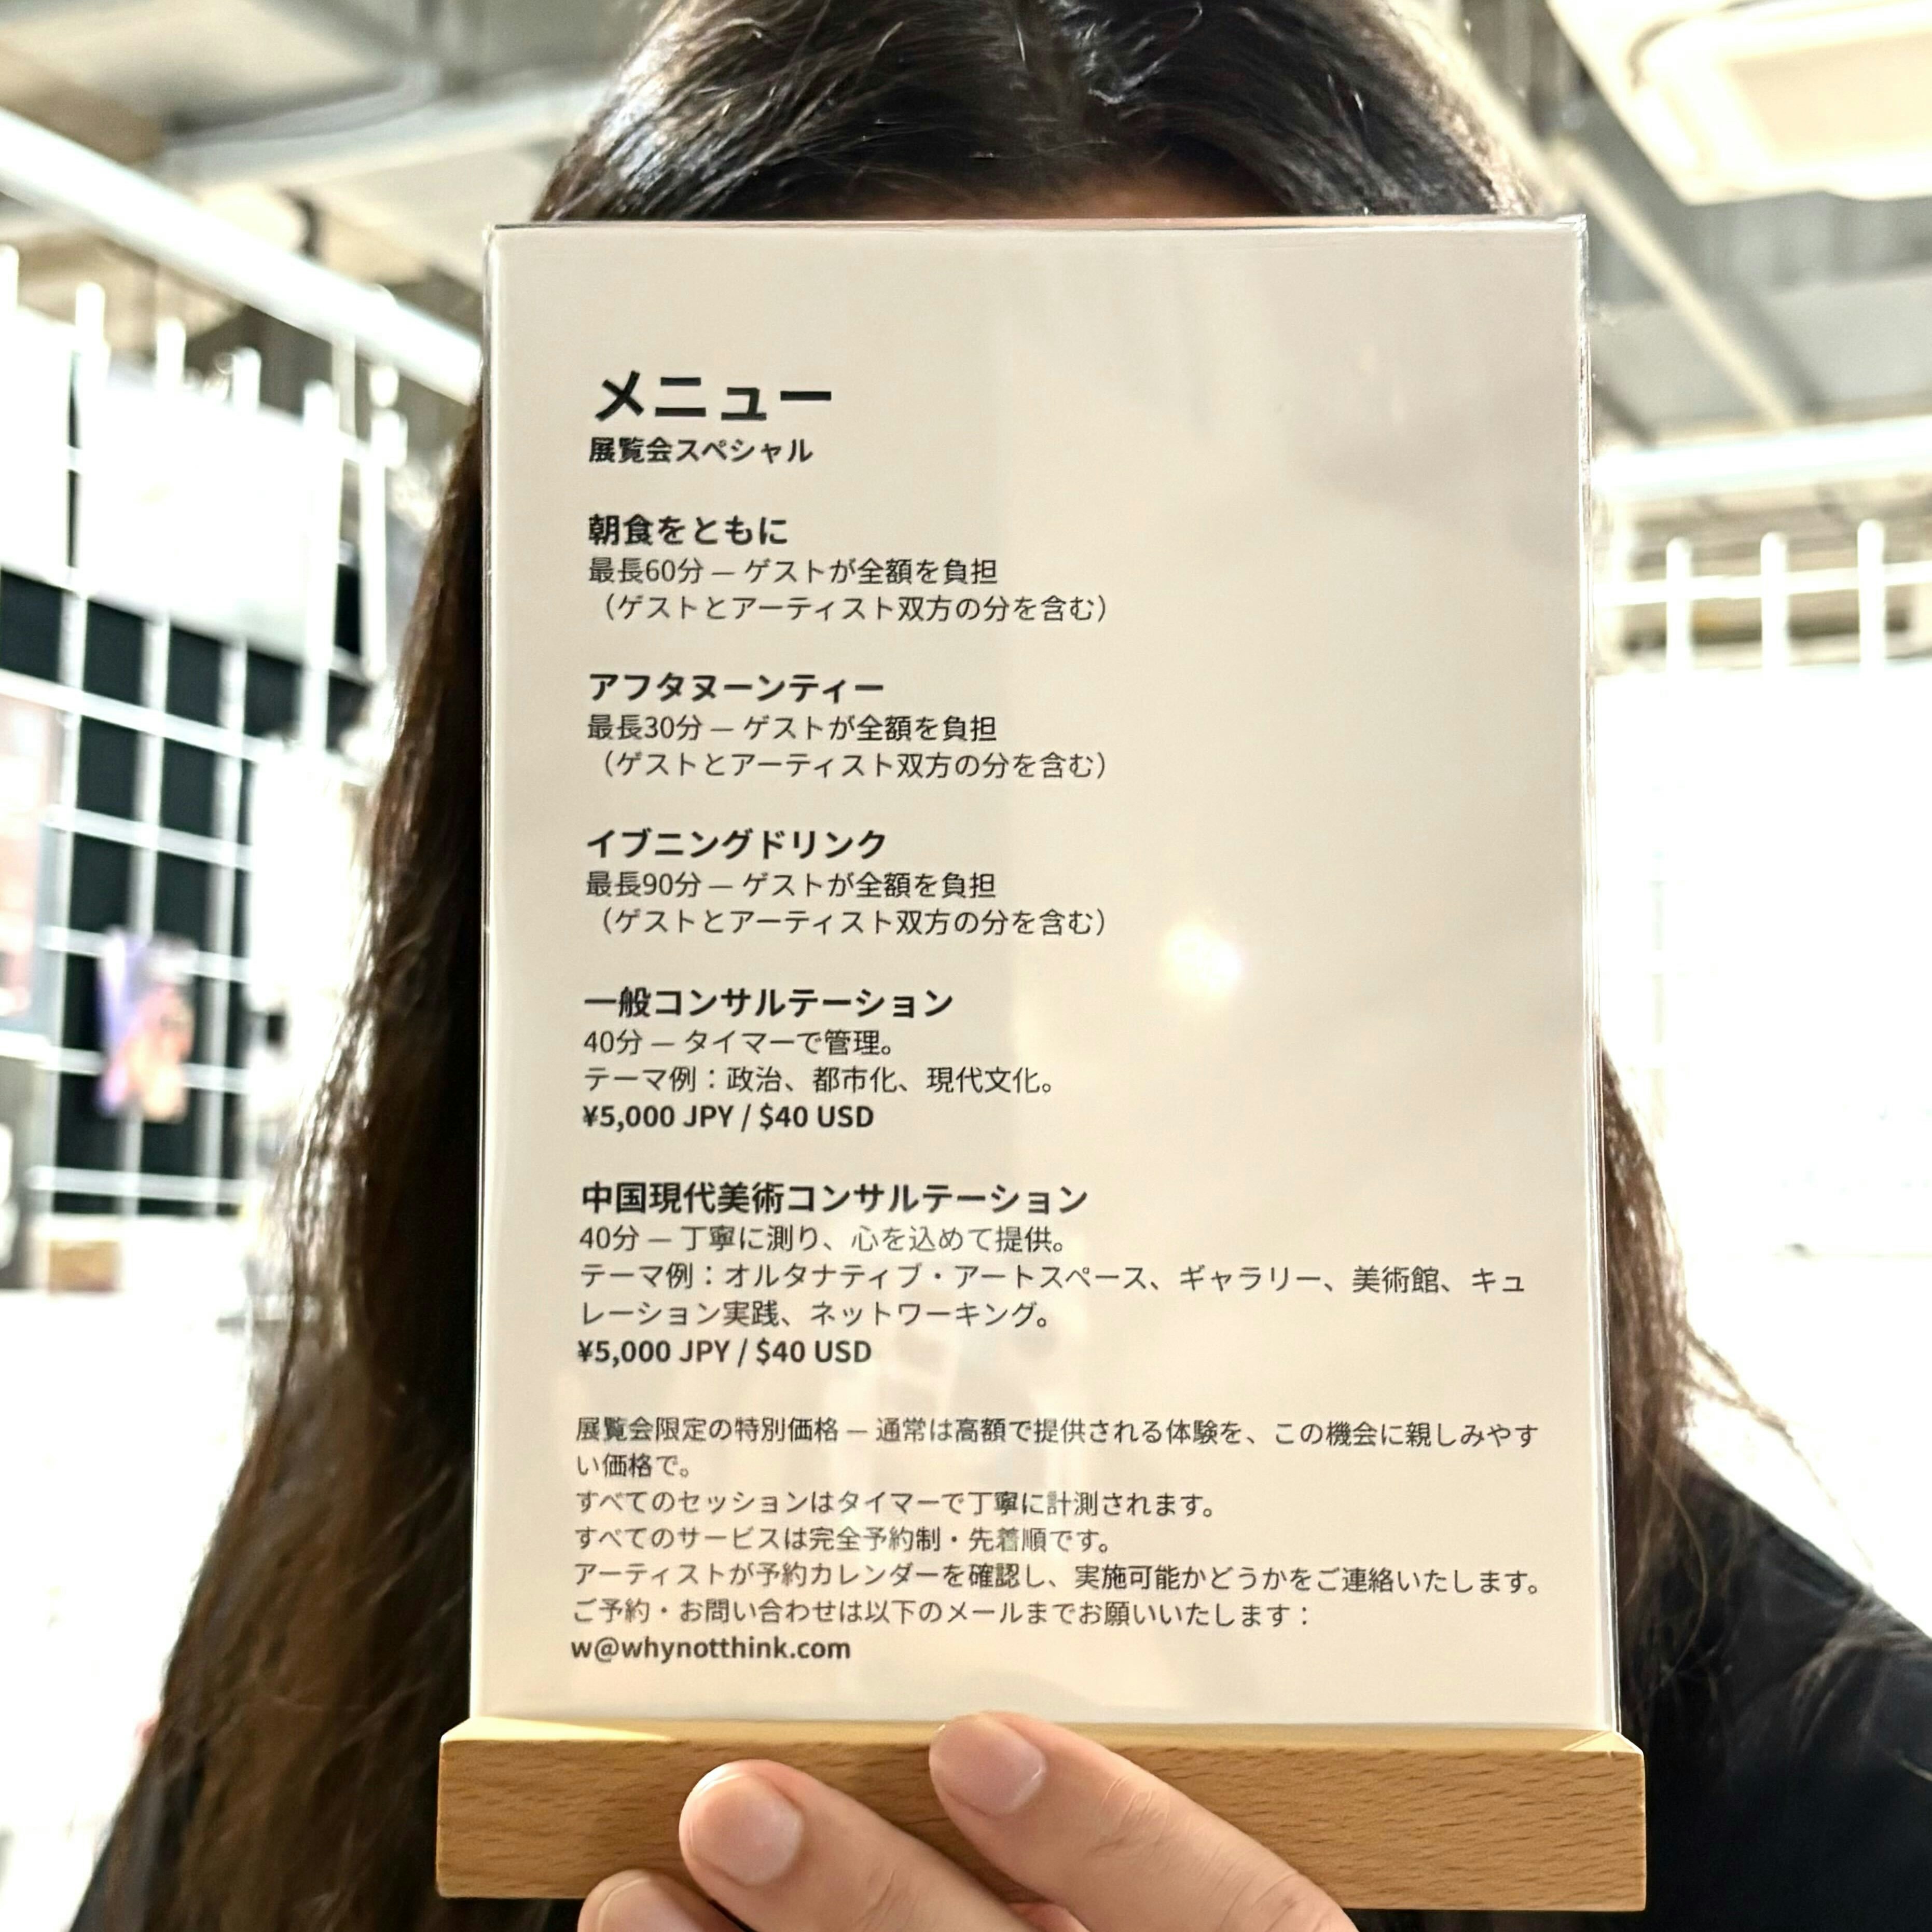 メニュー
展覧会スペシャル
朝食をともに
最長60分 — ゲストが全額を負担
（ゲストとアーティスト双方の分を含む）
アフタヌーンティー
最長30分 — ゲストが全額を負担
（ゲストとアーティスト双方の分を含む）
イブニングドリンク
最長90分 — ゲストが全額を負担
（ゲストとアーティスト双方の分を含む）
一般コンサルテーション
40分 — タイマーで管理。
テーマ例：政治、都市化、現代文化。
¥5,000 JPY / $40 USD
中国現代美術コンサルテーション
40分 — 丁寧に測り、心を込めて提供。
テーマ例：オルタナティブ・アートスペース、ギャラリー、美術館、キュ
レーション実践、ネットワーキング。
¥5,000 JPY / $40 USD
展覧会限定の特別価格 — 通常は高額で提供される体験を、この機会に親しみやす
い価格で。
すべてのセッションはタイマーで丁寧に計測されます。
すべてのサービスは完全予約制・先着順です。
アーティストが予約カレンダーを確認し、実施可能かどうかをご連絡いたします。
ご予約・お問い合わせは以下のメールまでお願いいたします：
w@whynotthink.com